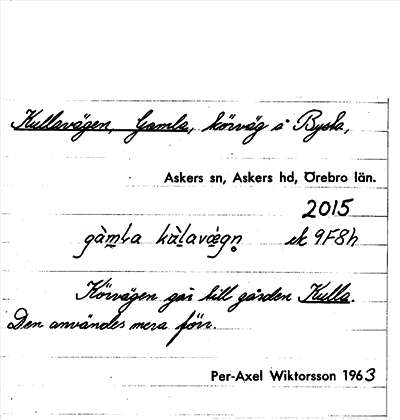 Kullavägen, Gamla, körväg å Rysta,
Askers sn, Askers hd, Örebro län.
2015
gàmla kàlavägn ek 9F8h
Körvägen går till gården Kulla.
Den användes mera förr.
Per-Axel Wiktorsson 1963